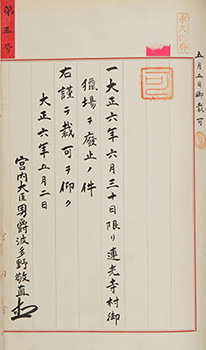 五月五日御裁可
永久保存
可
一大正六年六月三十日限リ連光寺村御
獵場ヲ廢止ノ件
右謹テ裁可ヲ仰ク
大正六年五月二日
宮内大臣男爵波多野敬直
第三号